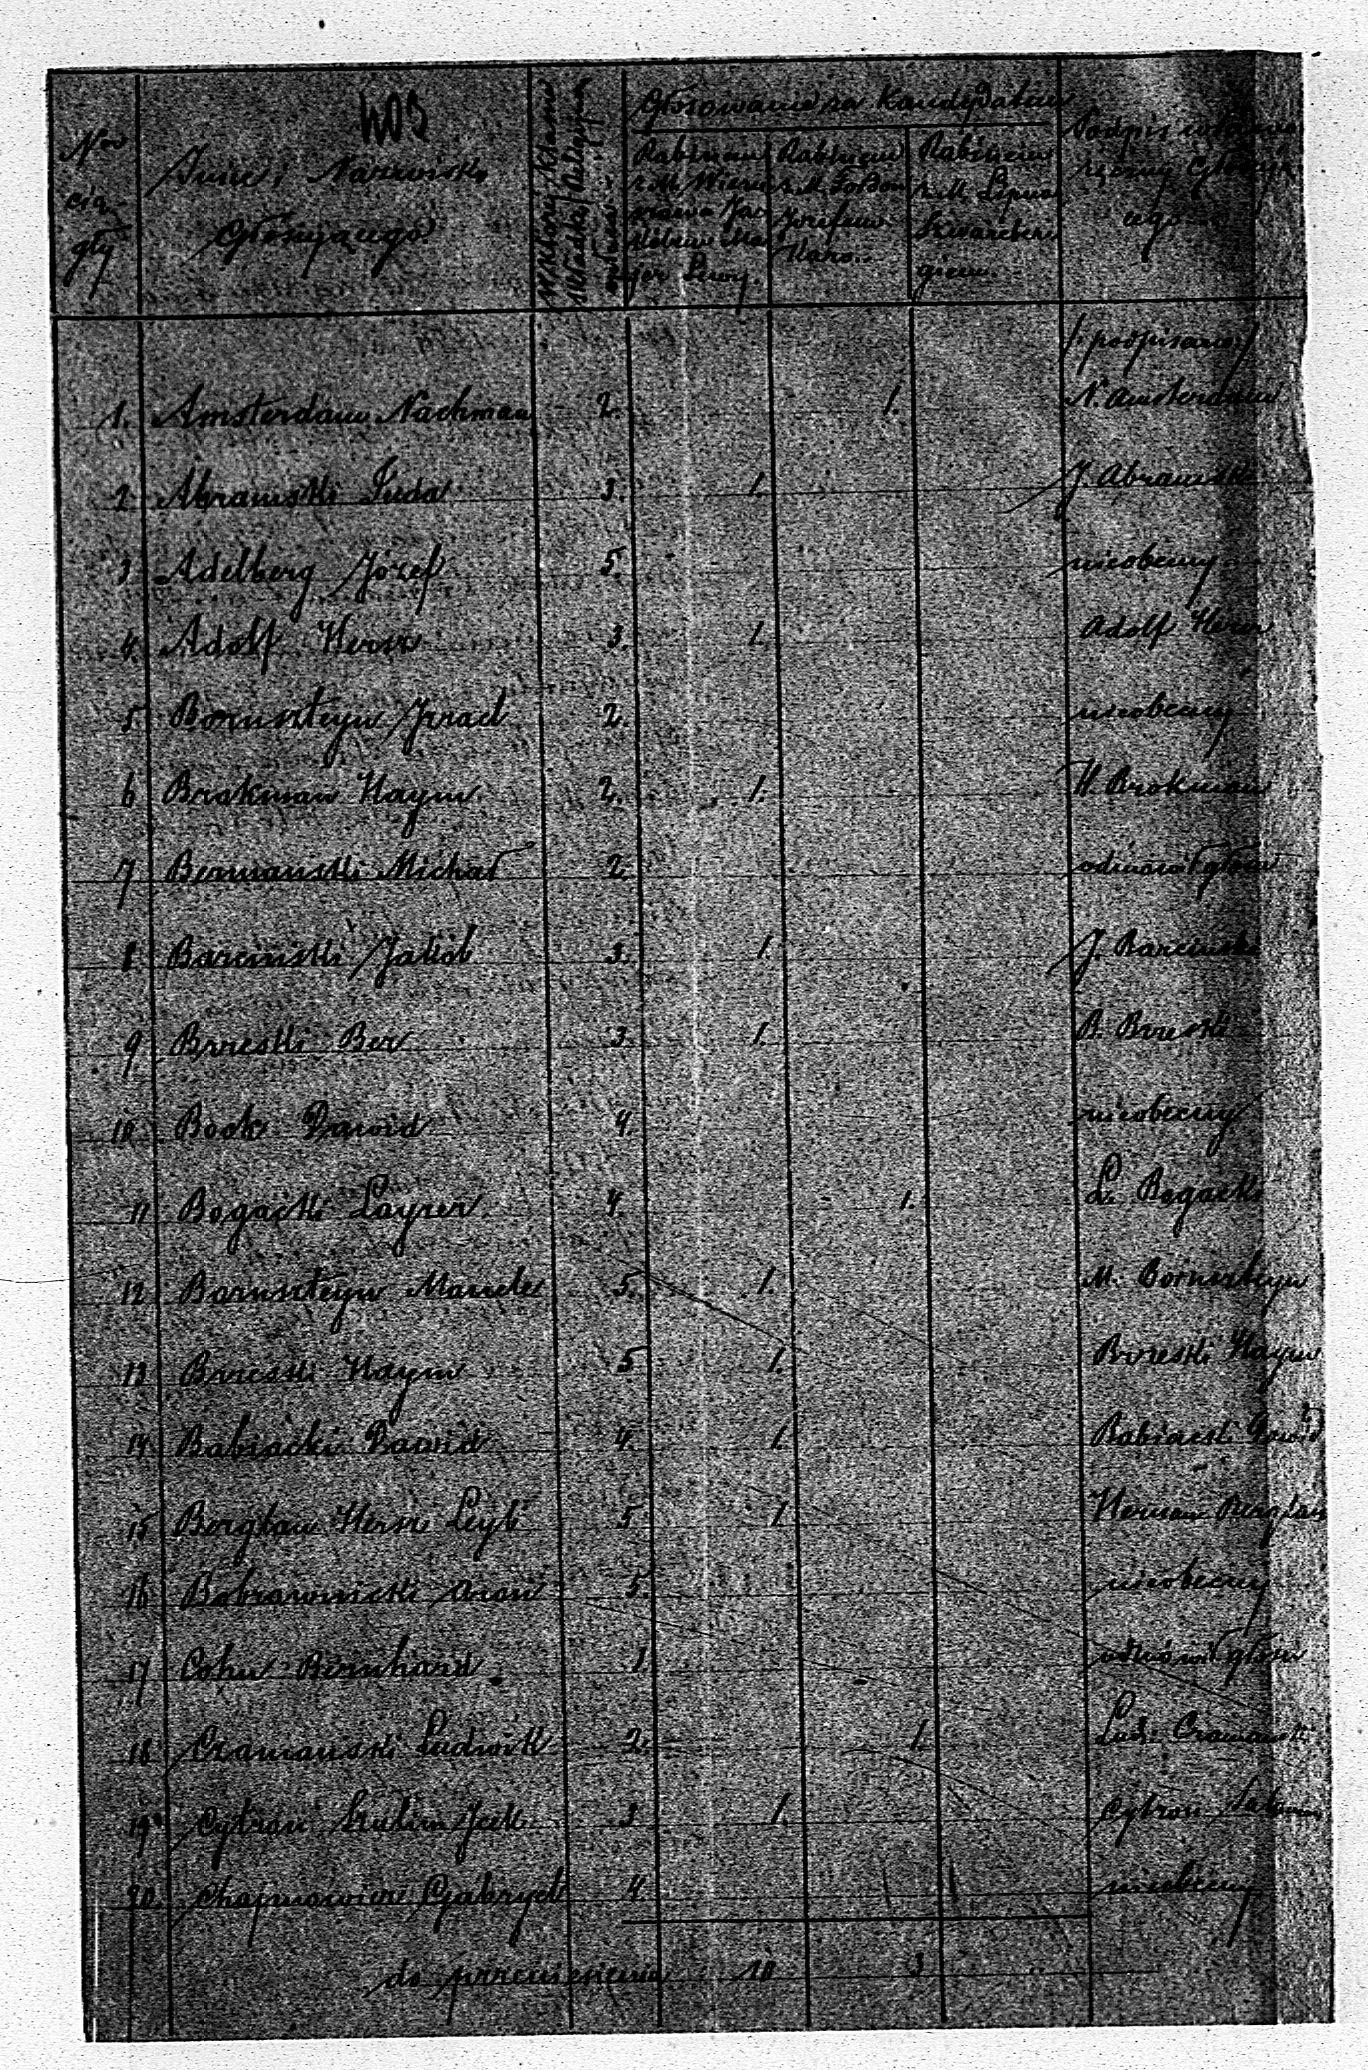 403
No ciągły
Imie i Nazwisko Głosującego
W której Klasie składki Religijnej
Głosowanie za Kandydatem
Rabinem z M. Wieru Jakóbem Majer Lewy.
Rabinem z M. Fordon Józefem Karo.
Rabinem z M. Lipna Szwarcber giem
Podpis własno ręczny Głosują cego
/: podpisano:/
1. Amsterdam Nachman 2. 1. N. Amsterdam
2 Abramski Juda 3. 1. J. Abramski
3 Adelberg Józef 5. nieobecny
4. Adolf Hersz 3. 1. Adolf Hersz
5 Bornszteyn Izrael 2 nieobecny
6 Brokman Haym 2. 1. H. Brokman
7 Bermanski Michał 2 odmówił głosu
8. Barcinski Jakób 3 1. J. Barcinski
9 Brzeski Ber 3 1. B. Brzeski
10 Book Dawid 4. nieobecny
11 Bogacki Layzer 4. 1. L. Bogacki
12 Bornszteyn Mendel 5. 1. M. Bornszteyn
13 Brzeski Haym 5 1. Brzeski Haym
14 Babiacki Dawid 4. 1. Babiacki Dawid
15 Bergtau Hersz Leyb 5 1. Herman Bergtau
16 Bobrownicki Aron 5. nieobecny
17 Cohn Bernhard 1. odmówił głosu
18 Czamanski Ludwik 2. 1. Lud. Czamanski
19 Cytron Szulim Jcek 3 1. Cytron Szulim
20. Chapnowicz Gabryel 4. nieobecny
do przeniesienia 10 3